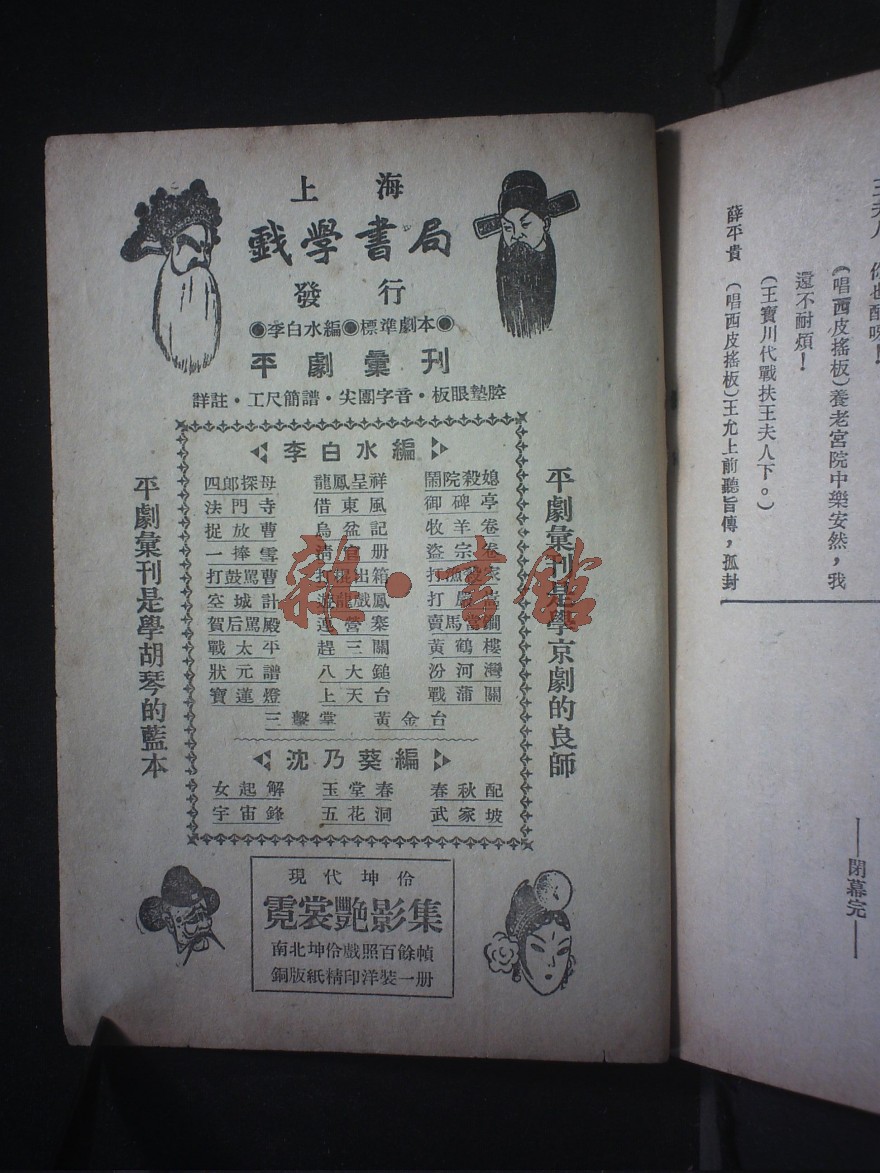 上海
戲学書局
發行
◉李白水編◉標準劇本◉
平劇彙刊
詳註·工尺簡譜·尖團字音·板眼墊腔
平劇彙刊是學京劇的良師
平劇彙刊是學胡琴的藍本
李白水編
四郎探母 龍鳳呈祥 鬧院殺媳
法門寺 借東風 御碑亭
捉放曹 烏盆記 牧羊卷
一捧雪 清官册 盜宗卷
打鼓罵曹 打棍出箱 打漁殺家
空城計 遊龍戲鳳 打嚴嵩
賀后罵殿 連營寨 賣馬當鐧
戰太平 趕三關 黃鶴樓
狀元譜 八大鎚 汾河灣
寶蓮燈 上天台 戰蒲關
三擊掌 黃金台
沈乃葵編
女起解 玉堂春 春秋配
宇宙鋒 五花洞 武家坡
現代坤伶
霓裳艷影集
南北坤伶戲照百餘幀
銅版紙精印洋裝一册
雜·書館
王夫人 你也配呀！
（唱西皮搖板）養老宮院中樂安然，我
還不耐煩！
（王寶川代戰扶王夫人下。）
薛平貴 （唱西皮搖板）王允上前聽旨傳，孤封
——閉幕完——